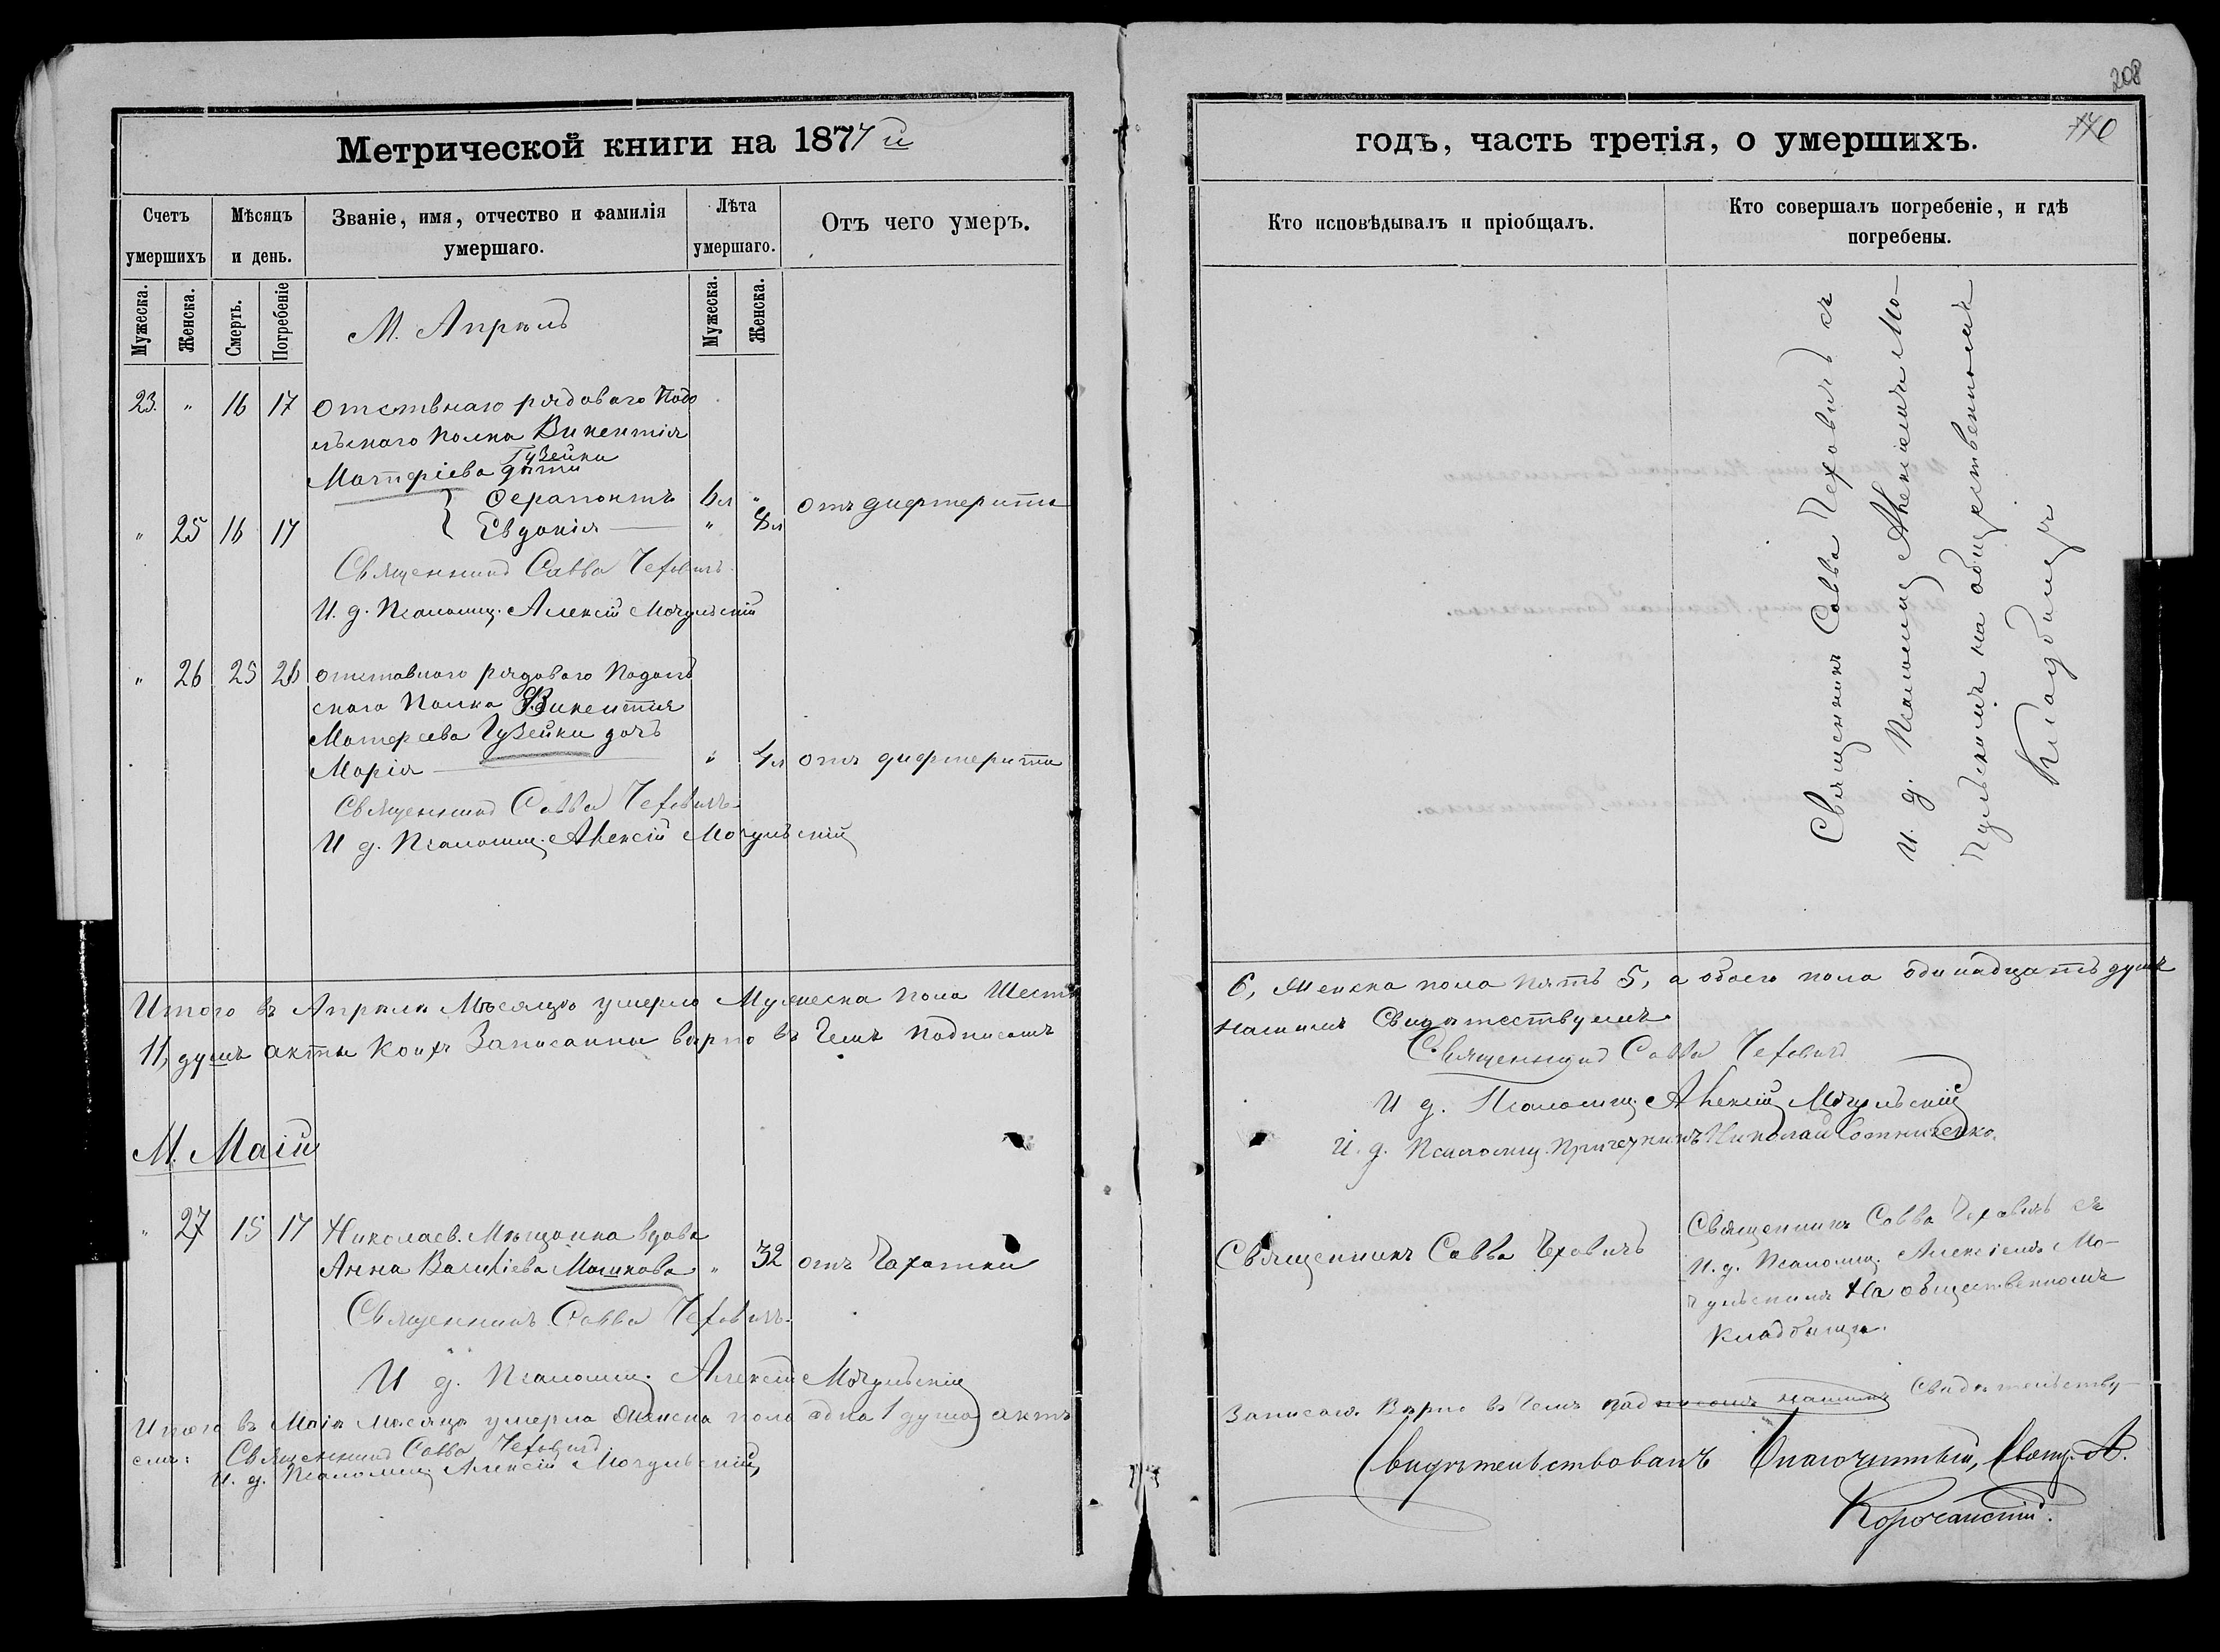 208
Метрической книги на 1877 й
годъ, часть третія, о умершихъ.
Счетъ умершихъ
Мѣсяцъ и день.
Званіе, имя, отчество и фамилія умершаго.
Лѣта умершаго.
Отъ чего умеръ.
Кто исповѣдывалъ и пріобщалъ.
Кто совершалъ погребеніе, и гдѣ погребены.
Мужеска.
Женска.
Смерть.
Погребеніе
Мужеска.
Женска.
М. Апрѣль
23. " 16 17 Отствнаго рядоваго Подо
льскаго полка Викентія
Гузейки
Матфіева дѣти
Ферапонтъ 6 л " отъ дифтерита
" 25 16 17 Евдокія " 8 л
Священникъ Савва Чеховичъ.
И. д. Псаломщ. Алексій Мочульскій
" 26 25 26 отставного рядового Подоль
скаго Полка Викентія
Матфеева Гузейки дочь
Марія " 4 л отъ дифтерита
Священникъ Савва Чеховичъ.
И д. Псаломщ. Алексій Мочульскій
Священникъ Савва Чеховичъ съ
И. д. Псаломщ Алексіемъ Мо-
чульскимъ на общественномъ
Кладбищѣ
Итого въ Апрѣлѣ Мѣсяцѣ умерло Мужеска пола Шесть
6, Женска пола пять 5, а обоего пола одинадцать душъ
11, душъ акты коихъ Записанны вѣрно въ Чемъ подписомъ
нашимъ Свидѣтествуемъ
Священникъ Савва Чеховичъ
И д. Псаломщ. Алексій Мочульскій
И. д. Псаломщ. Причетникъ Николай Сотниченко.
М. Маій
" 27 15 17 Николаев. Мѣщанка вдова
Анна Василіева Машкова " 32 отъ Чахотки
Священникъ Савва Чеховичъ.
И д. Псаломщ. Алексій Мочульскій
Священникъ Савва Чеховичъ
Священникъ Савва Чеховичъ съ
И. д. Псаломщ. Алексіемъ Мо-
чульскимъ На общественномъ
Кладбищѣ.
Итого въ Маіѣ мѣсяцѣ умерла Женска пола одна 1 душа актъ
Записан. Вѣрно въ Чемъ подписомъ нашимъ Свидѣтельству-
емъ: Священникъ Савва Чеховичъ
И. д. Псаломщ Алексій Мочульскій
Свидѣтельствовалъ Благочинный, Свящ. А.